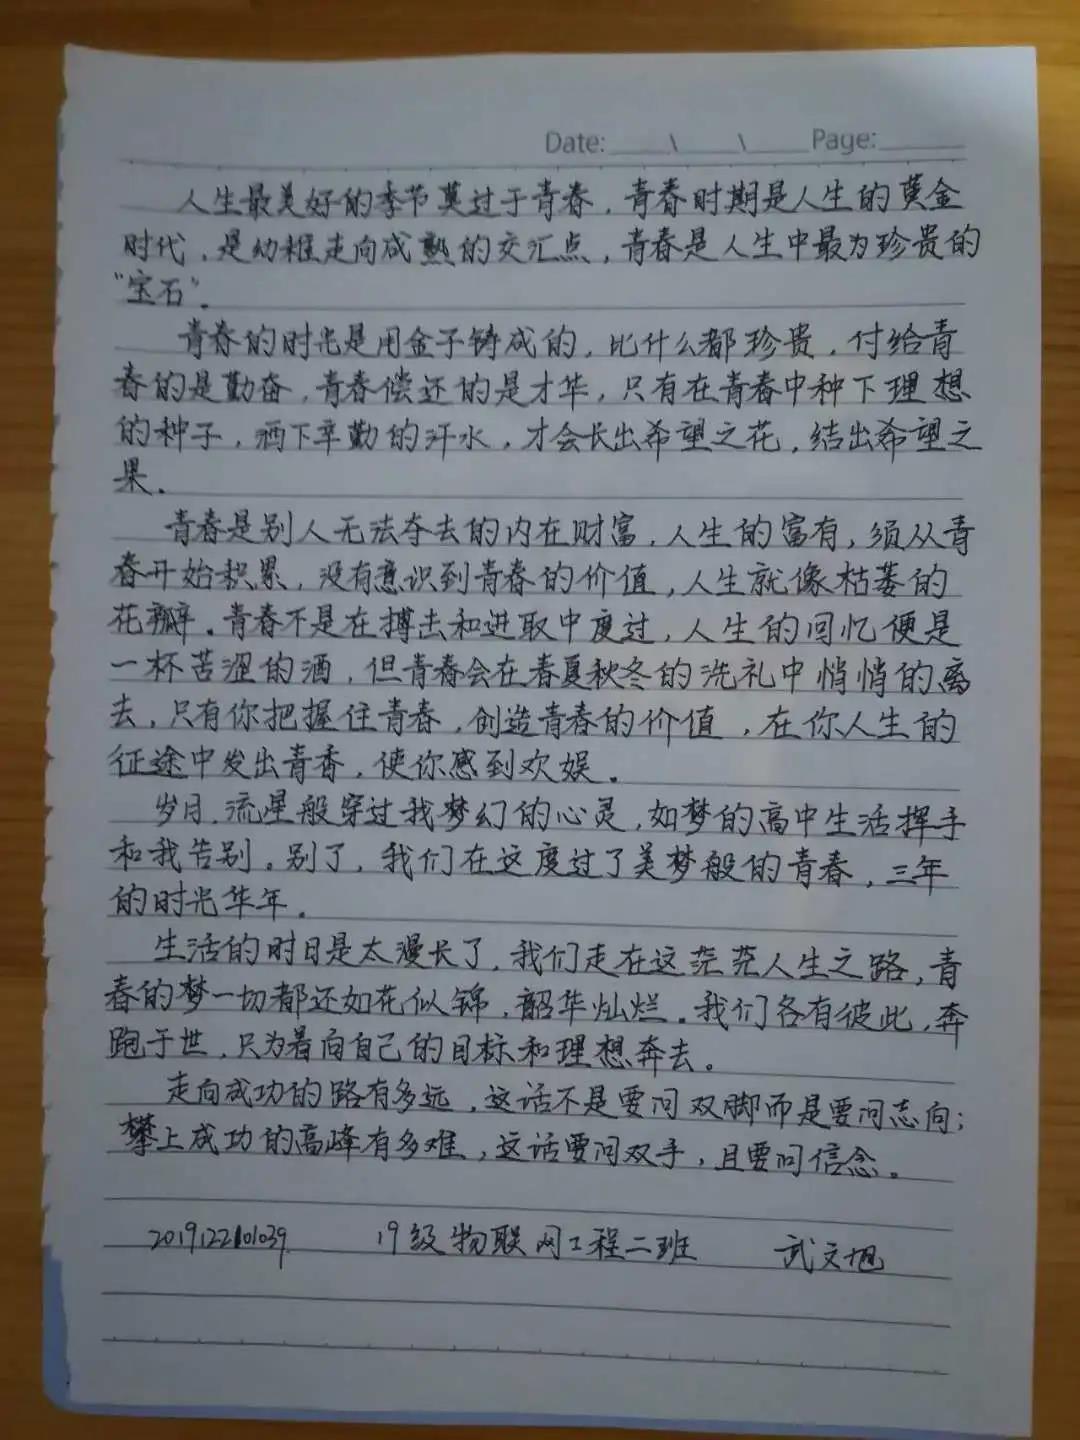 Date: ____\____\____ Page:______
人生最美好的季节莫过于青春，青春时期是人生的黄金
时代，是幼稚走向成熟的交汇点，青春是人生中最为珍贵的
“宝石”.
青春的时光是用金子铸成的，比什么都珍贵，付给青
春的是勤奋，青春偿还的是才华，只有在青春中种下理想
的种子，洒下辛勤的汗水，才会长出希望之花，结出希望之
果.
青春是别人无法夺去的内在财富，人生的富有，须从青
春开始积累，没有意识到青春的价值，人生就像枯萎的
花瓣。青春不是在搏击和进取中度过，人生的回忆便是
一杯苦涩的酒，但青春会在春夏秋冬的洗礼中悄悄的离
去，只有你把握住青春，创造青春的价值，在你人生的
征途中发出青香，使你感到欢娱。
岁月，流星般穿过我梦幻的心灵，如梦的高中生活挥手
和我告别。别了，我们在这度过了美梦般的青春，三年
的时光华年.
生活的时日是太漫长了，我们走在这茫茫人生之路，青
春的梦一切都还如花似锦，韶华灿烂。我们各有彼此，奔
跑于世，只为着向自己的目标和理想奔去。
走向成功的路有多远，这话不是要问双脚而是要问志向；
攀上成功的高峰有多难，这话要问双手，且要问信念。
2019122101039 19级物联网工程二班 武文旭